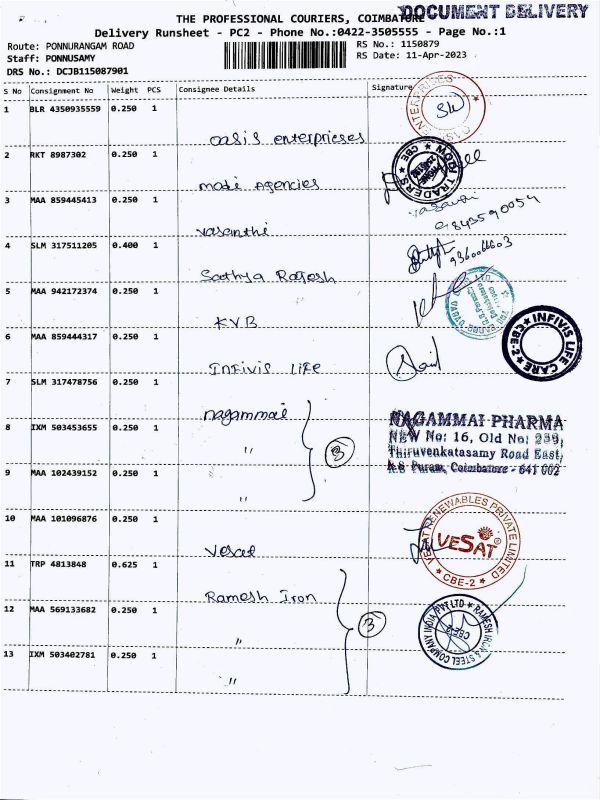 DOCUMENT DELIVERY
THE PROFESSIONAL COURIERS, COIMBATORE
Delivery Runsheet - PC2 - Phone No.:0422-3505555 - Page No.:1
Route: PONNURANGAM ROAD
RS No.: 1150879
Staff: PONNUSAMY
RS Date: 11-Apr-2023
DRS No.: DCJB115087901
S No Consignment No Weight PCS Consignee Details Signature
1 BLR 4350935559 0.250 1
Oasis enterprieses
2 RKT 8987302 0.250 1
modi Agencies
MODI TRADERS
CBE
3 MAA 859445413 0.250 1
vasanthi
9843590054
4 SLM 317511205 0.400 1
Sathya Ragesh
9360066603
5 MAA 942172374 0.250 1
KVB
6 MAA 859444317 0.250 1
Infivis life
INFIVIS LIFE CARE
CBE-2
7 SLM 317478756 0.250 1
nagammai
8 IXM 503453655 0.250 1
"
3
NAGAMMAI PHARMA
NEW No: 16, Old No: 239,
Thiruvenkatasamy Road East,
R.S Puram, Coimbatore - 641 002
9 MAA 102439152 0.250 1
"
10 MAA 101096876 0.250 1
Vesat
VESAT RENEWABLES PRIVATE LIMITED
VESAT
CBE-2
11 TRP 4813848 0.625 1
Ramesh Iron
12 MAA 569133682 0.250 1
"
3
RAMESH IRON & STEEL COMPANY INDIA PVT LTD
CBE-2
13 IXM 503402781 0.250 1
"